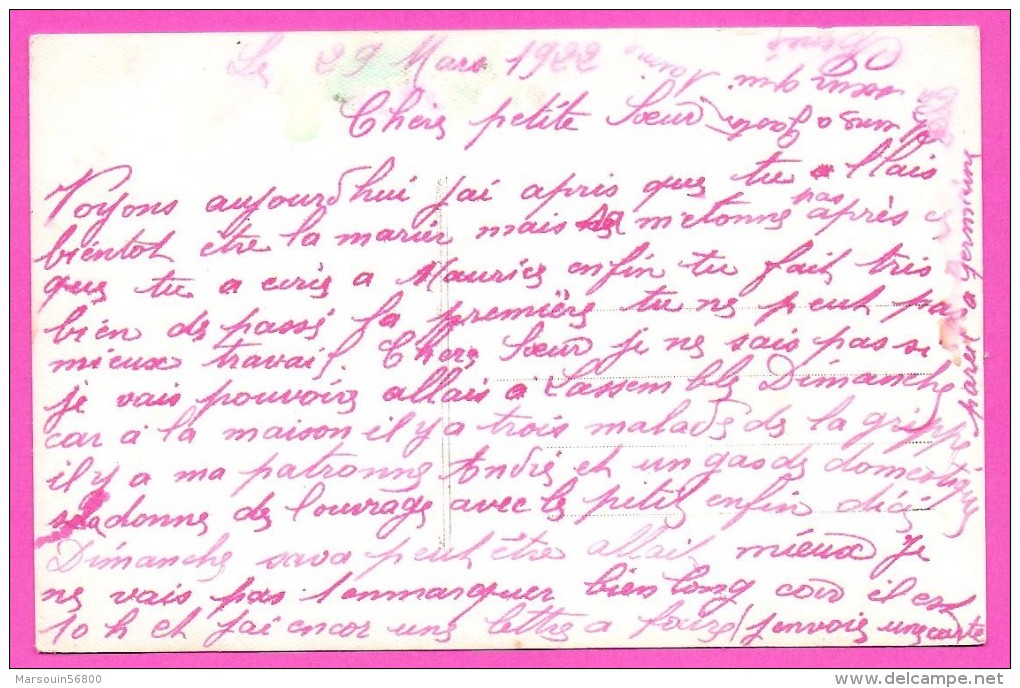 Le 29 Mars 1922
Chere petite Sœur
Voyons aujourdhui jai apris que tu allais
bientot être la marier mais sa m'etonne pas après ce
que tu a ecris a Maurice enfin tu fait tres
bien de passé la première tu ne peut pas
mieux travail. Chere Sœur je ne sais pas si
je vais pouvoire allais a Lassemblé Dimanche
car a la maison il y a trois malade de la grippe
il y a ma patronne André et un gas de domestique
sa donne de louvrage avec le petit enfin dici
Dimanche sava peut être allait mieux Je
ne vais pas tenmarquer bien long card il est
10 h et jai encor une lettre a faire j'envoie une carte
pareil a Germaine
sœur qui
Marsouin56800
delcampe.net